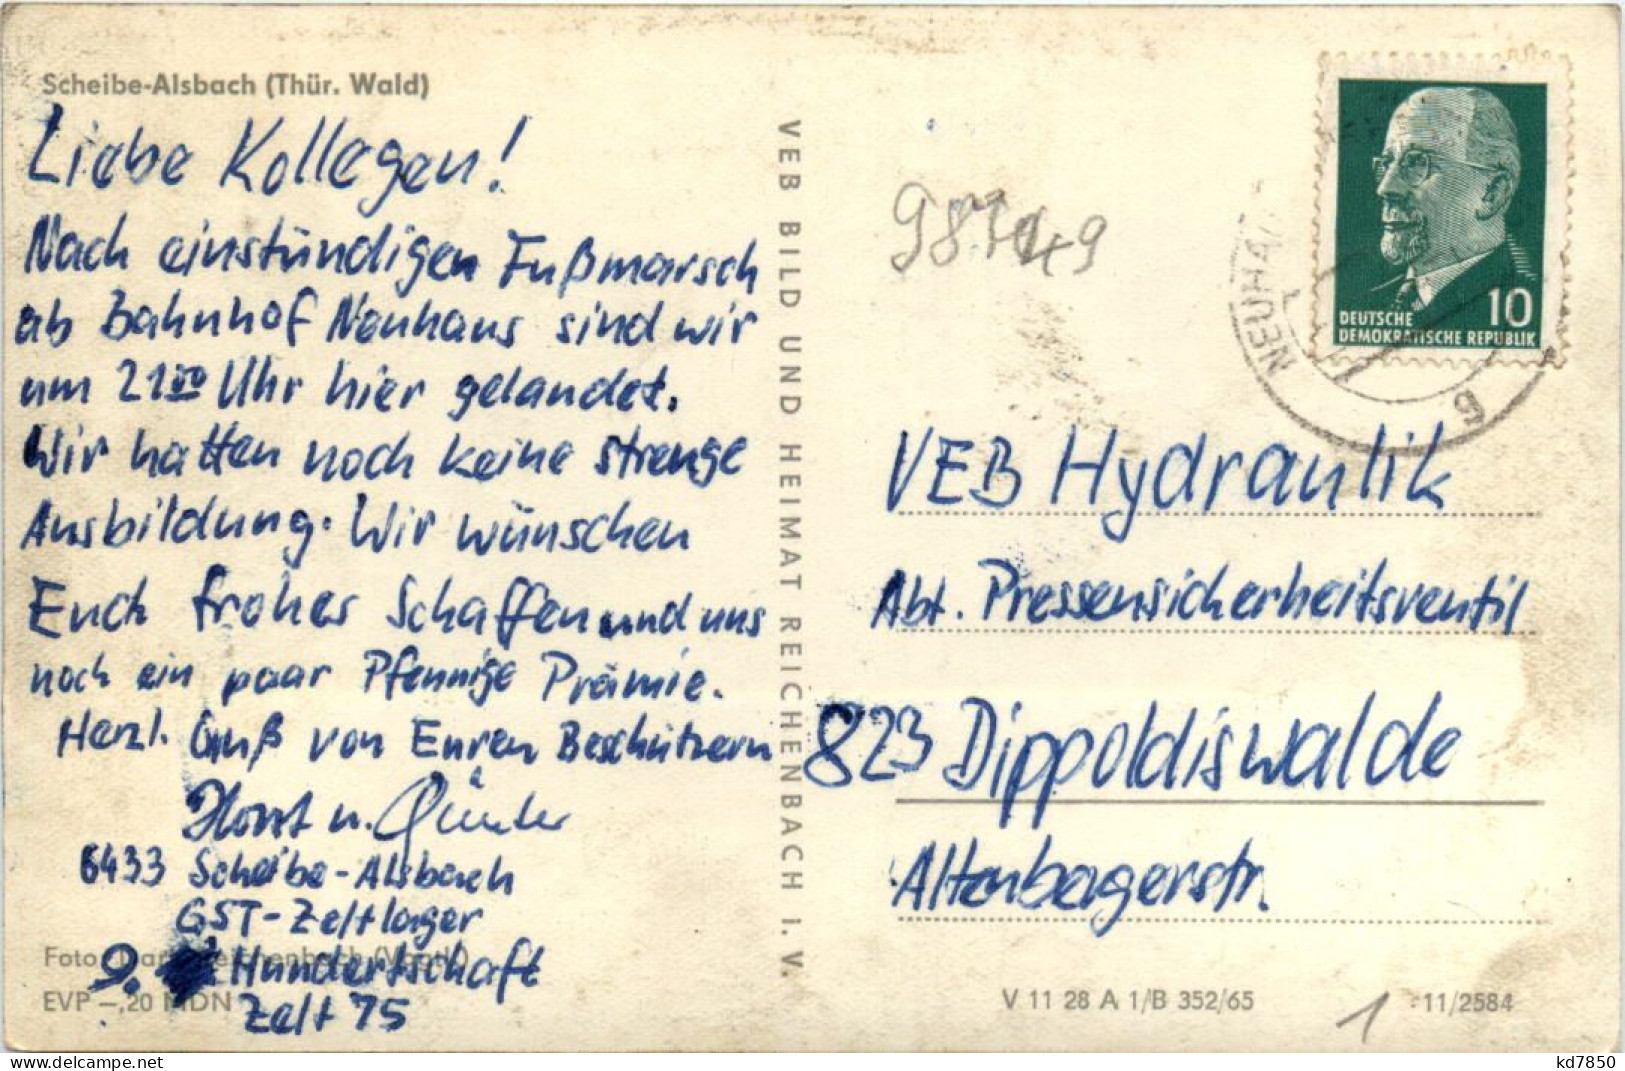 Scheibe-Alsbach (Thür. Wald)
Liebe Kollegen!
Nach einstündigen Fußmarsch
ab Bahnhof Neuhaus sind wir
um 21⁰⁰ Uhr hier gelandet.
Wir hatten noch keine strenge
Ausbildung. Wir wünschen
Euch frohes Schaffen und uns
noch ein paar Pfennige Prämie.
Herzl. Gruß von Euren Beschützern
Horst u. Günter
6433 Scheibe-Alsbach
GST-Zeltlager
9. Hundertschaft
Zelt 75
Foto: Reichenbach (Vogtl.)
EVP –,20 MDN
VEB BILD UND HEIMAT REICHENBACH I. V.
DEUTSCHE
DEMOKRATISCHE REPUBLIK
10
NEUHA
6
VEB Hydraulik
Abt. Pressensicherheitsventil
823 Dippoldiswalde
Altenbergerstr.
V 11 28 A 1/B 352/65
1
11/2584
kd7850